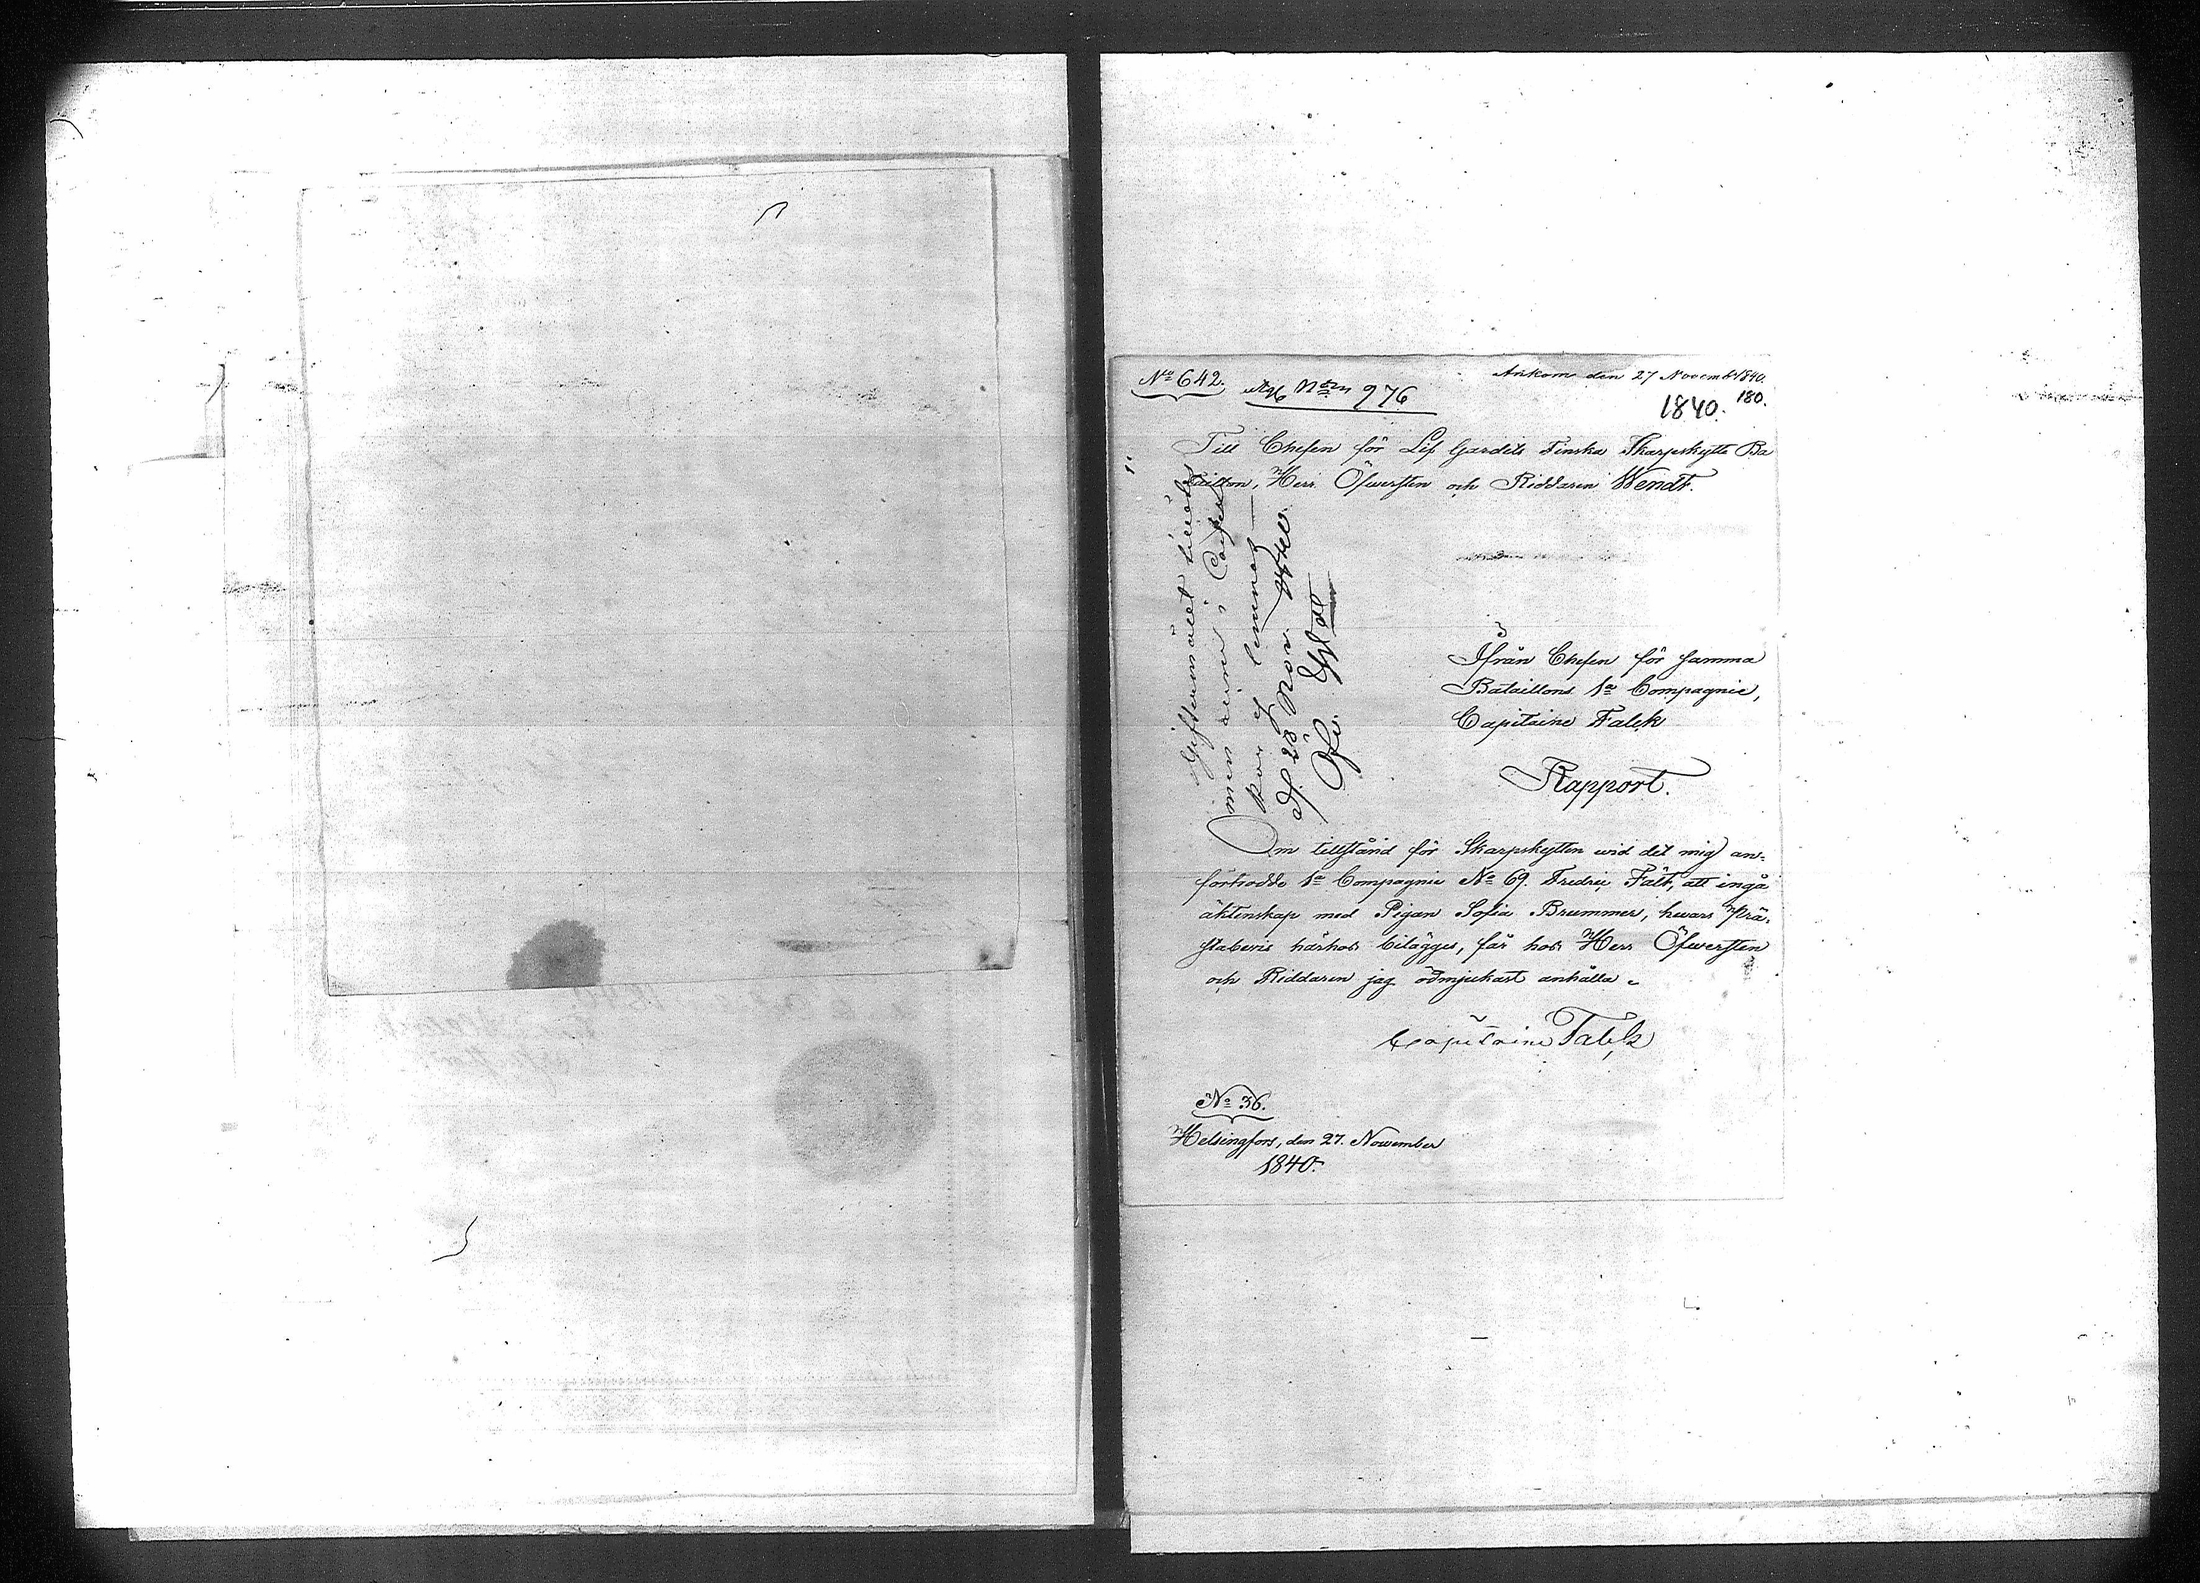 No 642.
976
Ankom den 27 Novemb 1840.
180.
1840.
Till Chefen för Lif Gardets Finska Skarpskytte Ba
taillon, Herr Öfwersten och Riddaren Wendt.
Giftermålet tillåtes
men
kan ej lemnas
d. 28 Nov. 1840.
Ifrån Chefen för samma
Bataillons 1a Compagnie,
Capitaine Falck
Rapport.
Om tillstånd för Skarpskytten wid det mig an-
förtrodde 1a Compagnie No 69. Fredric Fält, att ingå
äktenskap med Pigan Sofia Brummer, hwars Prä-
stabewis härhos bilägges, får hos Herr Öfwersten
och Riddaren jag ödmjukast anhålla.
Capitaine Falck
No 36.
Helsingfors, den 27. November
1840.